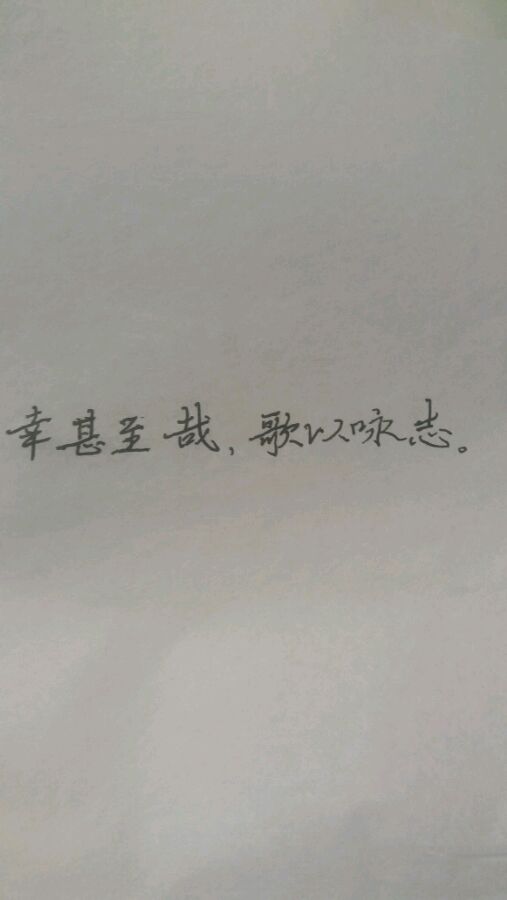 幸甚至哉，歌以咏志。